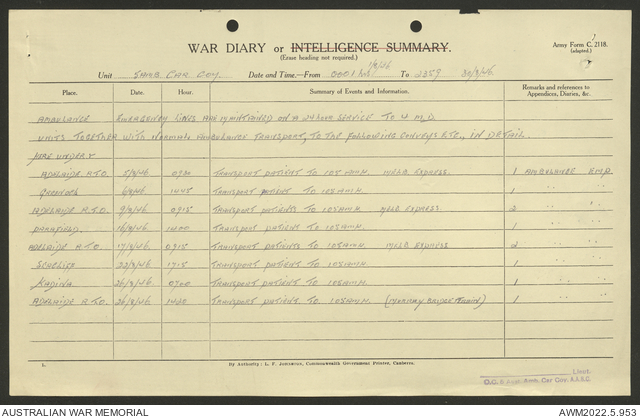 WAR DIARY or INTELLIGENCE SUMMARY.
(Erase heading not required.)
Army Form C. 2118.
(adapted.)
Unit Date and Time.—From 0001 hrs 1/8/46 To 2359 30/8/46
Place. Date. Hour. Summary of Events and Information. Remarks and references to Appendices, Diaries, &c.
AMBULANCE EMERGENCY LINES ARE MAINTAINED ON A 24 HOUR SERVICE TO 4 M.D.
UNITS TOGETHER WITH NORMAL AMBULANCE TRANSPORT, TO THE FOLLOWING CONVOYS ETC., IN DETAIL
HEREUNDER
ADELAIDE R.T.O. 5/8/46 0930 TRANSPORT PATIENT TO 105 AMH. MELB EXPRESS. 1 AMBULANCE EMP.
GREENOCK 6/8/46 1445 TRANSPORT PATIENT TO 105 AMH. 1 " "
ADELAIDE R.T.O. 9/8/46 0915 TRANSPORT PATIENTS TO 105 AMH. MELB EXPRESS. 2 " "
16/8/46 1400 TRANSPORT PATIENT TO 105 AMH. 1 " "
ADELAIDE R.T.O. 17/8/46 0915 TRANSPORT PATIENTS TO 105 AMH. MELB EXPRESS 2 " "
SEACLIFF 22/8/46 1715 TRANSPORT PATIENT TO 105 AMH. 1 " "
KADINA 26/8/46 0700 TRANSPORT PATIENT TO 105 AMH. 1 " "
ADELAIDE R.T.O. 26/8/46 TRANSPORT PATIENT TO 105 AMH. (MURRAY BRIDGE TRAIN) 1 " "
1.
By Authority: L. F. Johnston, Commonwealth Government Printer, Canberra.
Lieut.
Amb. Car Coy. A.A.S.C.
AUSTRALIAN WAR MEMORIAL
AWM2022.5.953